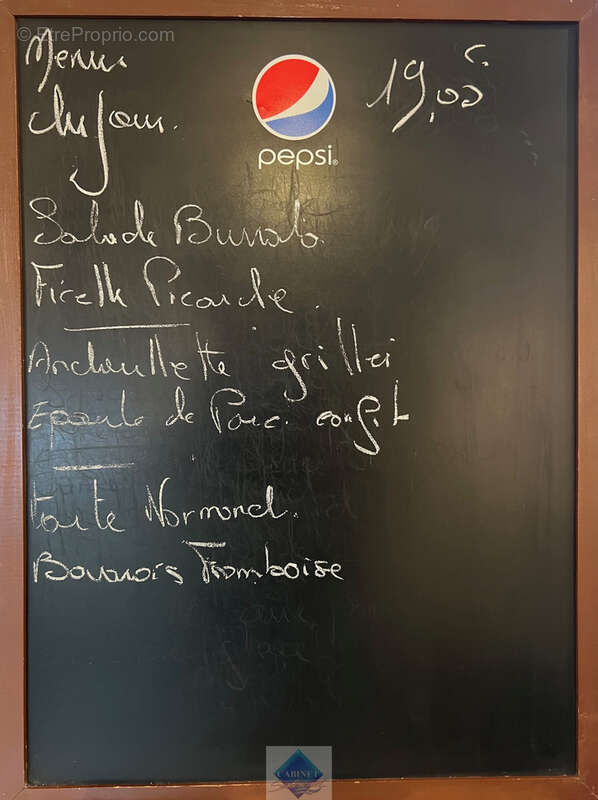 © EtreProprio.com
Menu 19,00 €
du jour.
pepsi®
Salade Burrata.
Ficelle Picarde.
Andouillette grillei
Epaule de Porc. confit
tarte Normand.
Bavarois Framboise
CABINET